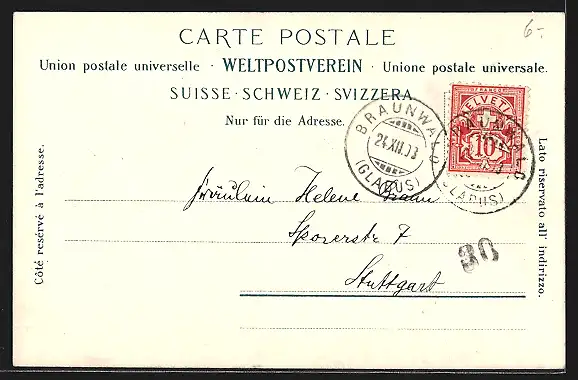 6.-
CARTE POSTALE
Union postale universelle · WELTPOSTVEREIN · Unione postale universale.
SUISSE · SCHWEIZ · SVIZZERA
Nur für die Adresse.
Côté resérvé à l'adresse.
Lato riservato all' indirizzo.
BRAUNWALD
24.XII.03
(GLARUS)
FRANCO
HELVETIA
10
BRAUNWALD
(GLARUS)
Fräulein Helene
Sporerstr 7
30
Stuttgart